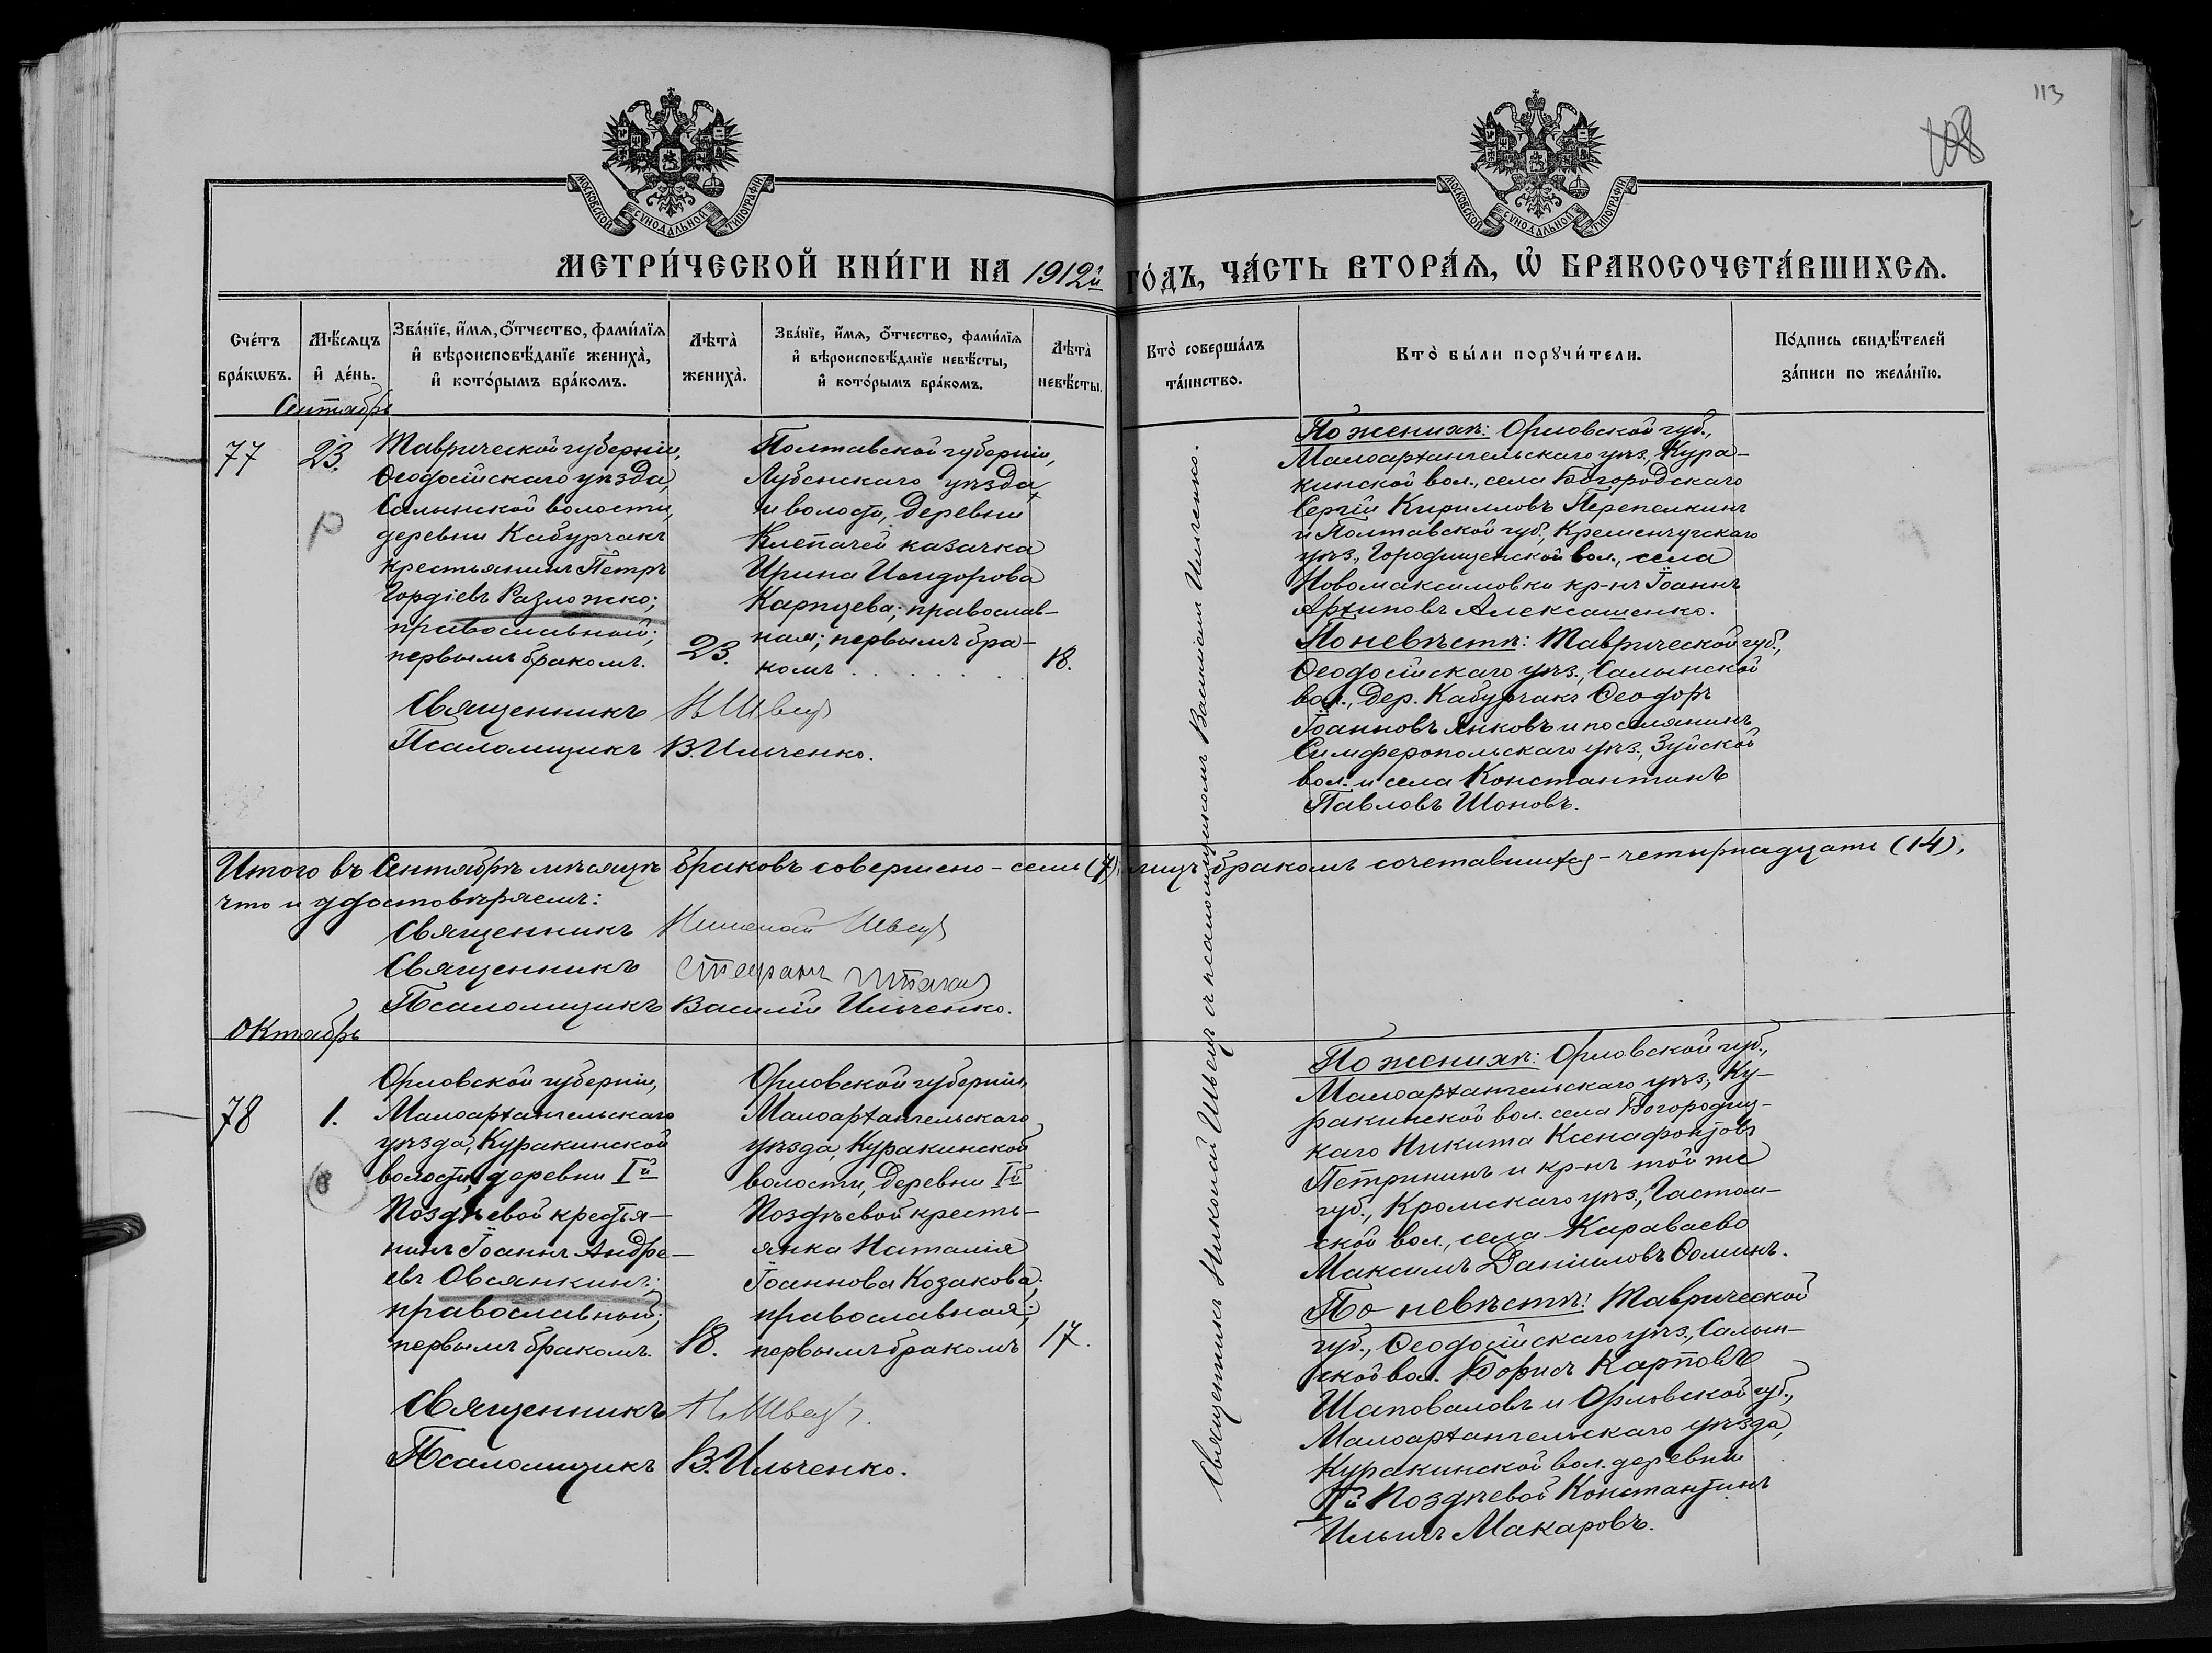 113
108
МОСКОВСКОЙ СѴНОДАЛЬНОЙ ТИПОГРАФІИ
МОСКОВСКОЙ СѴНОДАЛЬНОЙ ТИПОГРАФІИ
МЕТРИ́ЧЕСКОЙ КНИ́ГИ НА 1912й ГО́ДЪ, ЧА́СТЬ ВТОРА́Ѧ, Ѡ҆ БРАКОСОЧЕТА́ВШИХСѦ.
Сче́тъ бра́кѡвъ.
Мѣ́сѧцъ и҆ де́нь.
Зва́нїе, и҆́мѧ, ѻ҆́тчество, фами́лїѧ
и҆ вѣроисповѣ́данїе жениха̀,
и҆ кото́рымъ бра́комъ.
Лѣта̀ жениха̀.
Зва́нїе, и҆́мѧ, ѻ҆́тчество, фами́лїѧ
и҆ вѣроисповѣ́данїе невѣ́сты,
и҆ кото́рымъ бра́комъ.
Лѣта̀ невѣ́сты.
Кто̀ соверша́лъ та́инство.
Кто̀ бы́ли порꙋчи́тели.
По́дпись свидѣ́телей
за́писи по жела́нїю.
Сентябрь
77
23.
Таврической губерніи,
Ѳеодосійскаго уѣзда,
Салынской волости,
деревни Кабурчакъ
крестьянинъ Петръ
Гордіевъ Разложко;
православный;
первымъ бракомъ.
23.
Полтавской губерніи,
Лубенскаго уѣзда
и волости, деревни
Клепачей казачка
Ирина Исидорова
Карпцева; православ-
ная; первымъ бра-
комъ . . . . . . .
18.
Священникъ Н Швецъ
Псаломщикъ В. Ильченко.
Священникъ Николай Швецъ съ псаломщикомъ Василіемъ Ильченко.
По женихѣ: Орловской губ.,
Малоархангельскаго уѣз., Кура-
кинской вол., села Богородскаго
Сергій Кирилловъ Перепелкинъ
и Полтавской губ., Кременчугскаго
уѣз., Городищенской вол., села
Новомаксимовки кр-нъ Іоаннъ
Архиповъ Алексашенко.
По невѣстѣ: Таврической губ.,
Ѳеодосійскаго уѣз., Салынской
вол., дер. Кабурчакъ Ѳеодоръ
Іоанновъ Янковъ и поселянинъ
Симферопольскаго уѣз., Зуйской
вол. и села Константинъ
Павловъ Шоновъ.
Итого въ Сентябрѣ мѣсяцѣ браковъ совершено - семь (7); лицъ бракомъ сочетавшихся - четырнадцать (14),
что и удостовѣряемъ:
Священникъ Николай Швецъ
Священникъ Стефанъ
Псаломщикъ Василій Ильченко.
Октябрь
78
1.
Орловской губерніи,
Малоархангельскаго
уѣзда, Куракинской
волости, деревни Iй
Поздѣевой крестья-
нинъ Іоаннъ Андре-
евъ Овсянкинъ;
православный;
первымъ бракомъ.
18.
Орловской губерніи,
Малоархангельскаго
уѣзда, Куракинской
волости, деревни Iй
Поздѣевой кресть-
янка Наталія
Іоаннова Козакова;
православная;
первымъ бракомъ
17.
Священникъ Н. Швецъ.
Псаломщикъ В. Ильченко.
По женихѣ: Орловской губ.,
Малоархангельскаго уѣз., Ку-
ракинской вол. села Богородиц-
каго Никита Ксенофонтовъ
Петрининъ и кр-нъ той же
губ., Кромскаго уѣз., Гастом-
ской вол., села Караваево
Максимъ Даніиловъ Ѳоминъ.
По невѣстѣ: Таврической
губ., Ѳеодосійскаго уѣз., Салын-
ской вол. Борисъ Карповъ
Шаповаловъ и Орловской губ.,
Малоархангельскаго уѣзда,
Куракинской вол. деревни
Iй Поздѣевой Константинъ
Ильинъ Макаровъ.